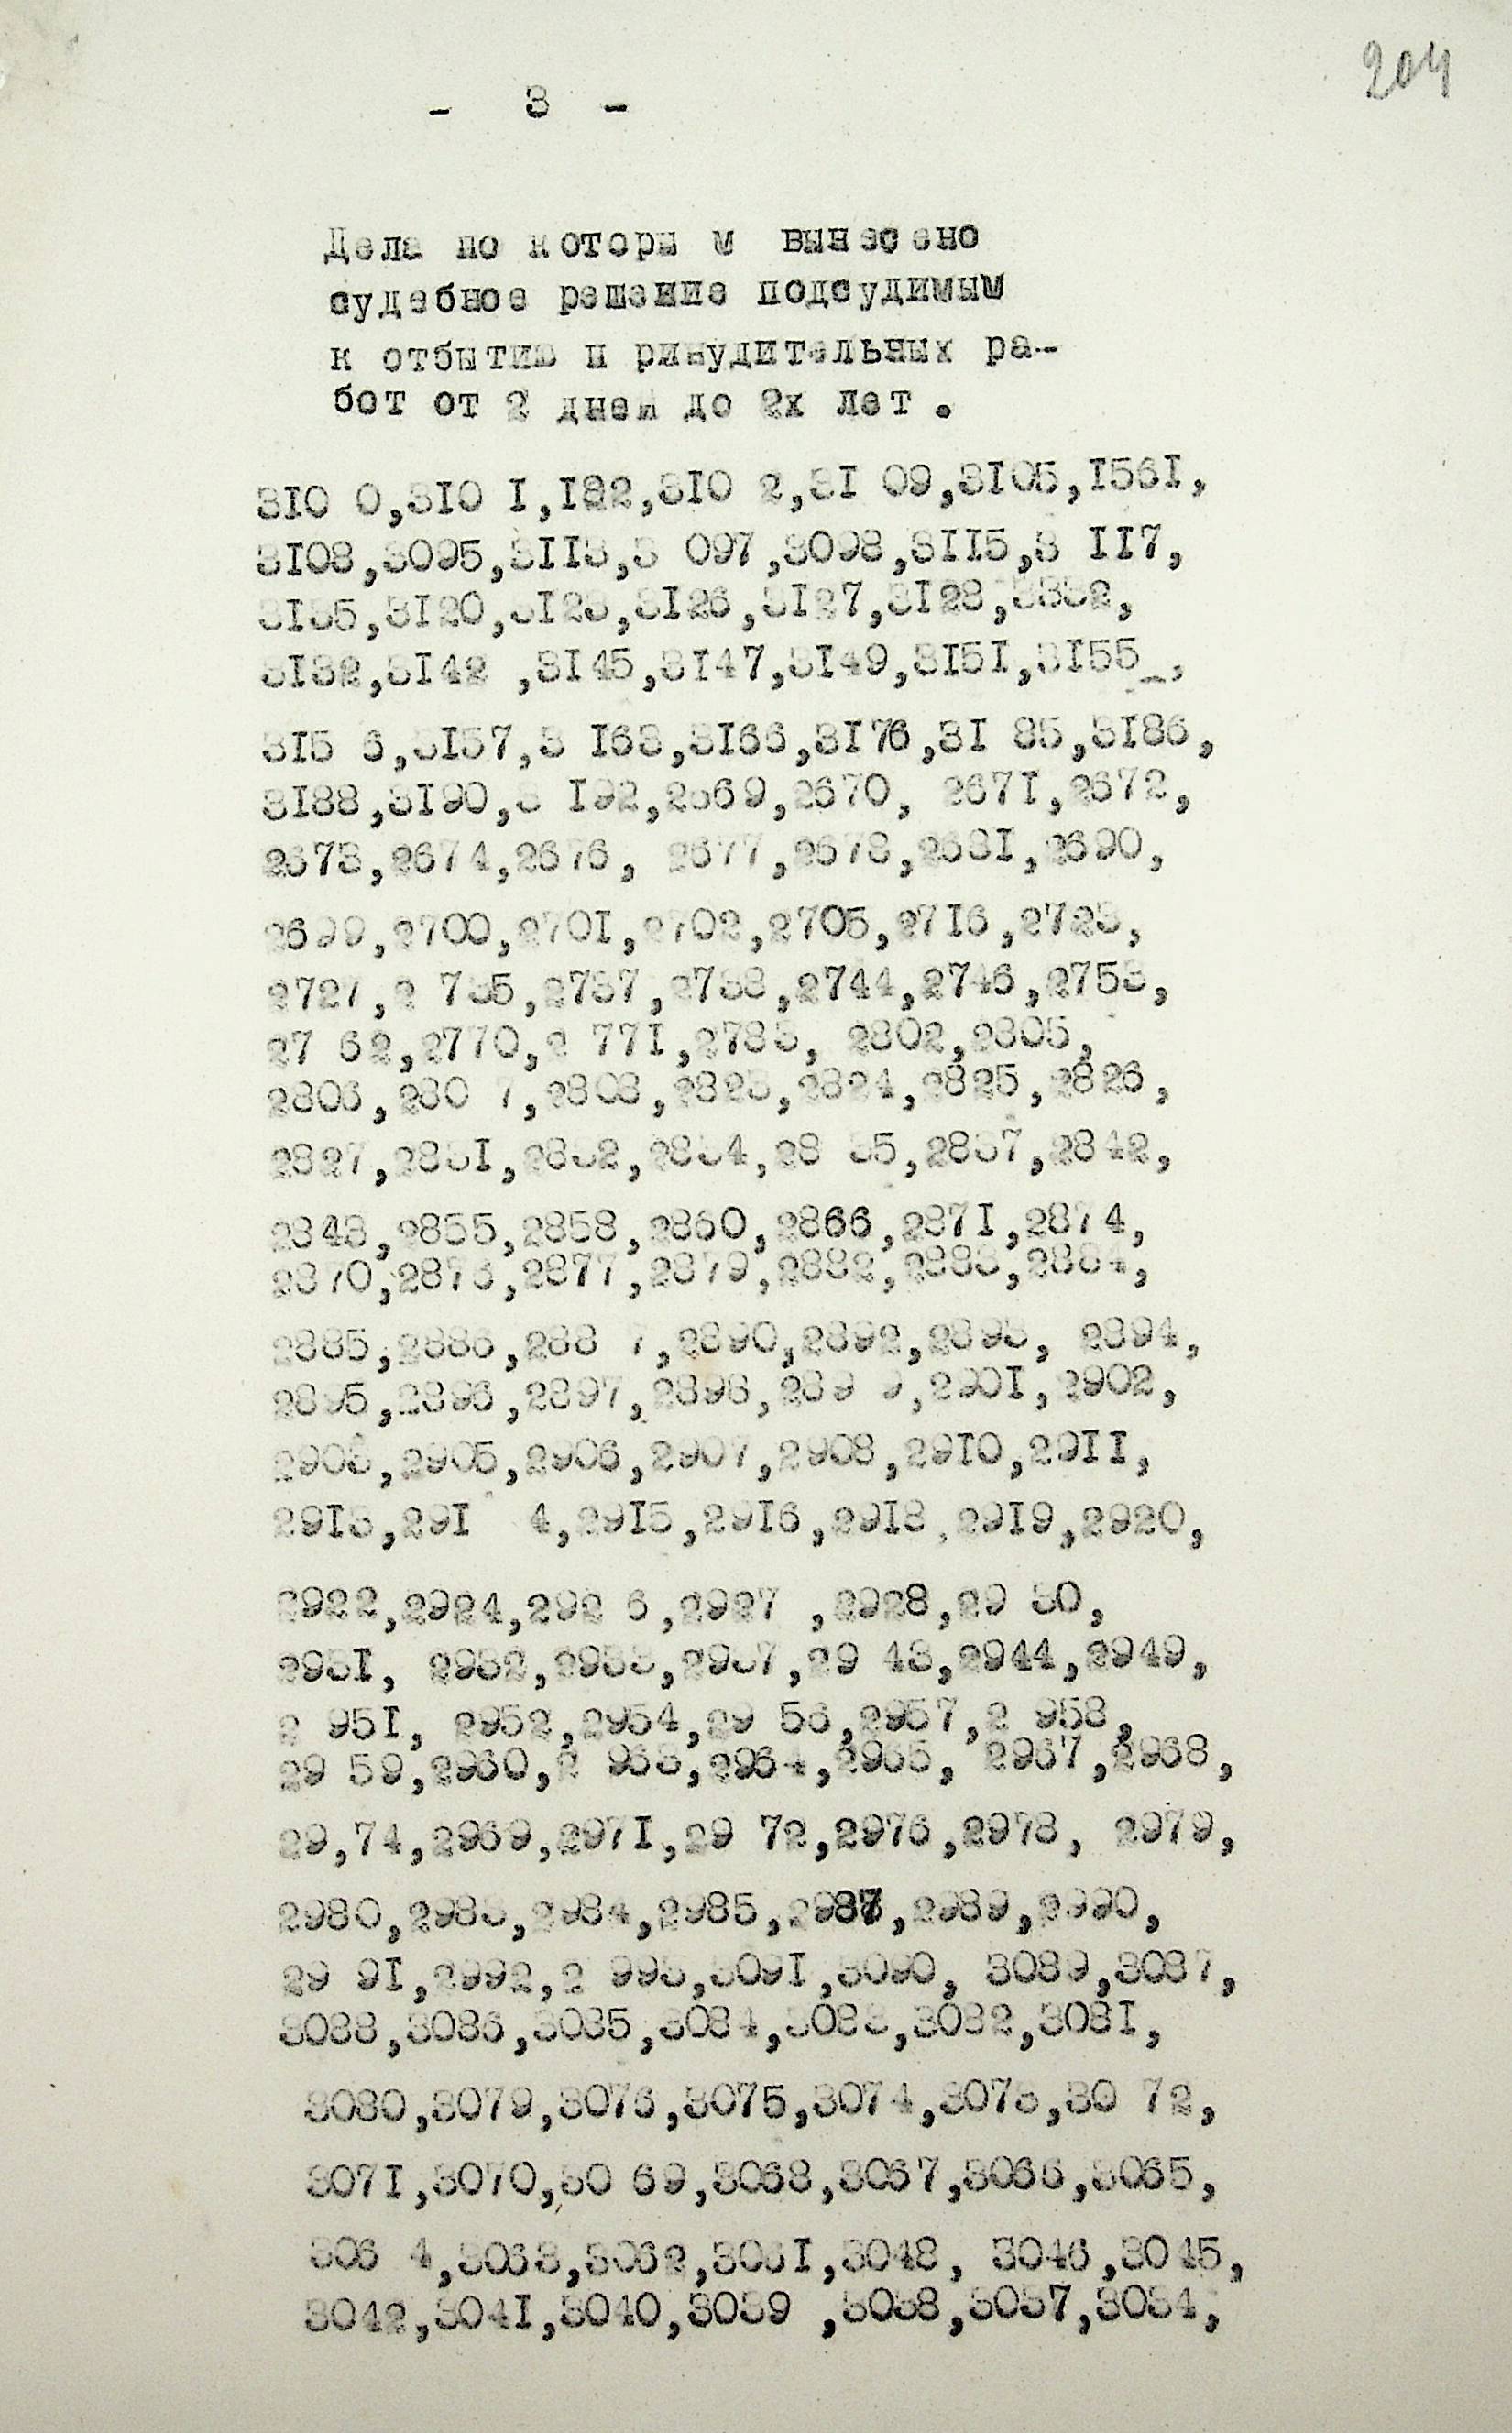 204
- 3 -
Дела по которы м вынесено
судебное решение подсудимым
к отбытию п ринудительных ра-
бот от 2 дней до 2х лет.
310 0,310 1,182,310 2,31 09,3105,1561,
3108,3095,3113,3 097,3098,3115,3 117,
3135,3120,3123,3126,3127,3128,3332,
3132,3142 ,3145,3147,3149,3151,3155_,
315 6,3157,3 163,3166,3176,31 85,3186,
3188,3190,3 192,2669,2670, 2671,2672,
2673,2674,2676, 2677,2678,2681,2690,
2699,2700,2701,2702,2705,2716,2723,
2727,2 735,2737,2738,2744,2746,2753,
27 62,2770,2 771,2783, 2802,2805,
2806,280 7,2808,2823,2824,2825,2826,
2827,2831,2832,2834,28 35,2837,2842,
2843,2855,2858,2860,2866,2871,2874,
2870,2876,2877,2879,2882,2883,2884,
2885,2886,288 7,2890,2892,2893, 2894,
2895,2896,2897,2898,289 9,2901,2902,
2903,2905,2906,2907,2908,2910,2911,
2913,291 4,2915,2916,2918,2919,2920,
2922,2924,292 6,2927 ,2928,29 30,
2931, 2932,2933,2937,29 43,2944,2949,
2 951, 2952,2954,29 56,2957,2 958,
29 59,2960,2 963,2964,2965, 2967,2968,
29,74,2969,2971,29 72,2976,2978, 2979,
2980,2983,2984,2985,2987,2989,2990,
29 91,2992,2 993,3091,3090, 3089,3087,
3088,3086,3085,3084,3083,3082,3081,
3080,3079,3076,3075,3074,3073,30 72,
3071,3070,30 69,3068,3067,3066,3065,
306 4,3063,3062,3061,3048, 3046,3045,
3042,3041,3040,3039 ,3038,3037,3034,